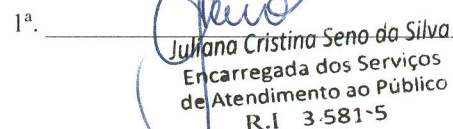 1ª.
Juliana Cristina Seno da Silva
Encarregada dos Serviços
de Atendimento ao Público
R.I 3.581-5